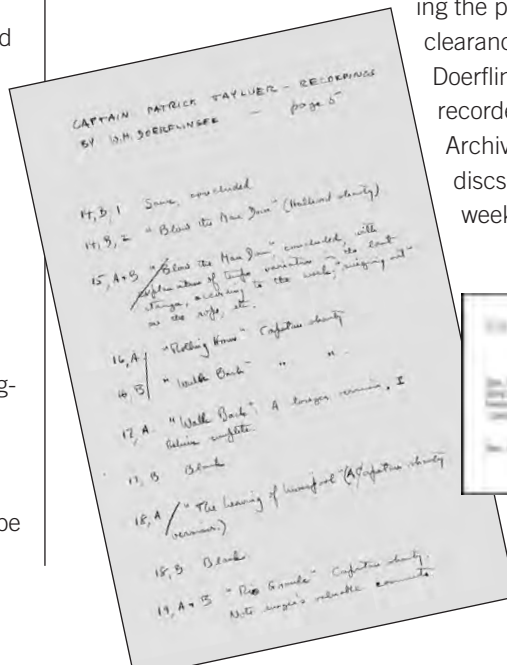 d
g-
be
ing the p
clearanc
Doerflin
recorde
Archiv
discs
week
CAPTAIN PATRICK TAYLUER – RECORDINGS
BY W.M. DOERFLINGER – page 5
14, B, 1 Same, concluded
14, B, 2 "Blow the Man Down" (Halliard shanty)
15, A+B "Blow the Man Down" concluded, with
explanation of tempo variation in the last
stanza, according to the work, "singing out"
on the rope, etc.
16, A "Rolling Home" Capstan shanty
16, B "Walk Back" " "
17, A "Walk Back". A longer version, I
believe complete.
17, B Blank
18, A "The Leaving of Liverpool" (A Capstan shanty
version.)
18, B Blank.
19, A+B "Rio Grande" Capstan shanty.
Note singer's valuable comments